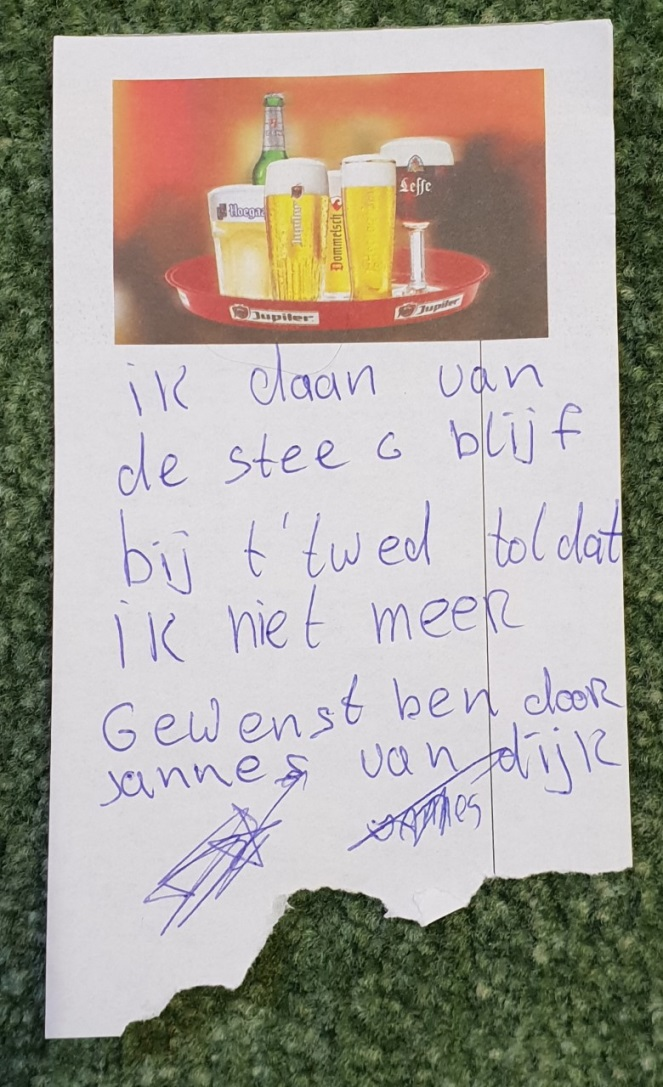 Hoegaa
Jupiler
Dommelsch
Leffe
Jupiler
Jupiler
ik daan van
de steeG blijf
bij t'twed toldat
ik niet meer
Gewenst ben door
sannes van dijk